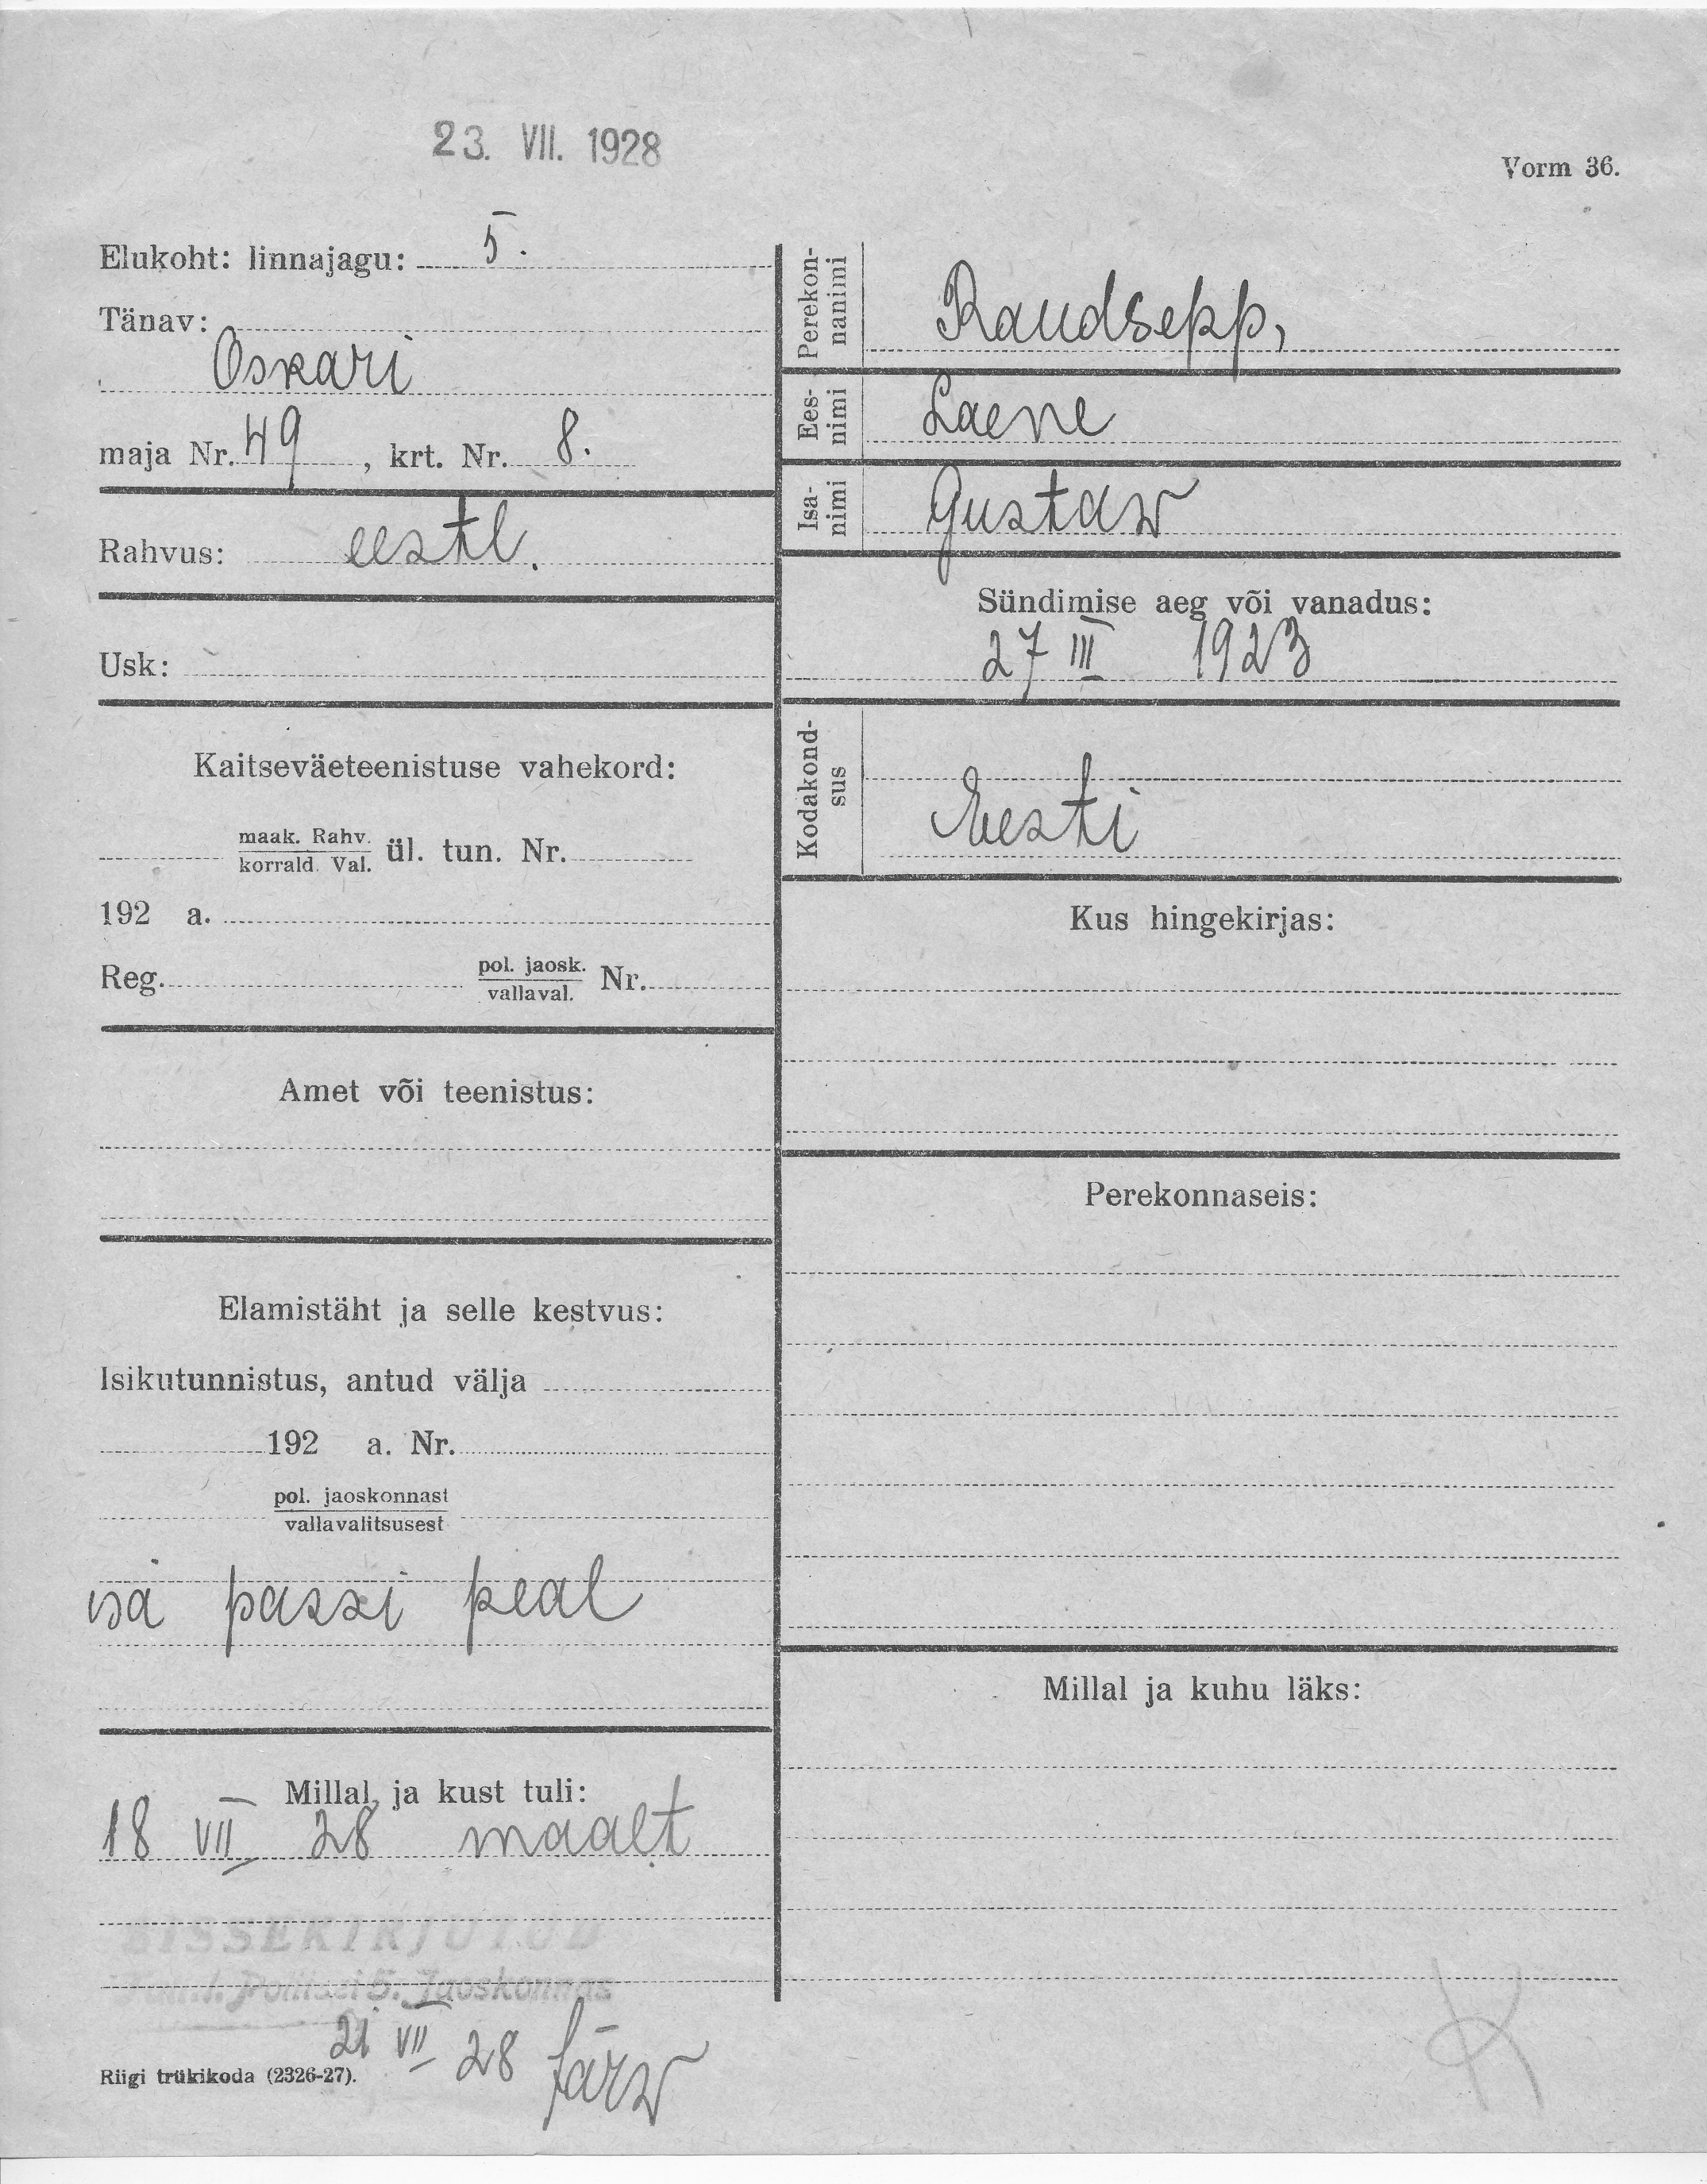 23. VII. 1928
Vorm 36.
Elukoht: linnajagu: 5.
Tänav:
Oskari
maja Nr. 49, krt. Nr. 8.
Rahvus: eestl.
Usk:
Kaitseväeteenistuse vahekord:
maak. Rahv.
korrald. Val. ül. tun. Nr.
192 a.
Reg. pol. jaosk.
vallaval. Nr.
Amet või teenistus:
Elamistäht ja selle kestvus:
Isikutunnistus, antud välja
192 a. Nr.
pol. jaoskonnast
vallavalitsusest
isa passi peal
Millal ja kust tuli:
18 VII 28 maalt
SISSEKIRJUTUD
Politsei 5. Jaoskonnas
21 VII 28 Järw
Riigi trükikoda (2326-27).
Perekon-
nanimi
Raudsepp,
Ees-
nimi
Laene
Isa-
nimi
Gustaw
Sündimise aeg või vanadus:
27 III 1923
Kodakond-
sus
Eesti
Kus hingekirjas:
Perekonnaseis:
Millal ja kuhu läks:
K